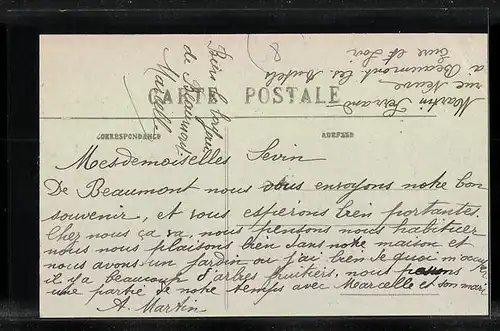 CARTE POSTALE
CORRESPONDANCE
ADRESSE
Mesdemoiselles Sevin
De Beaumont nous vous envoyons notre bon
souvenir, et vous espérons bien portantes.
Cher nous ça va, nous pensons nous habituer
nous nous plaisons bien dans notre maison et
nous avons un jardin ou j'ai bien de quoi m'occuper
il y a beaucoup d'arbres fruitiers, nous passons
une partie de notre temps avec Marcelle et son mari
A. Martin
de Beaumont
Marcelle
Martin
rue Neuve
à Beaumont les Autels
Eure et Loir